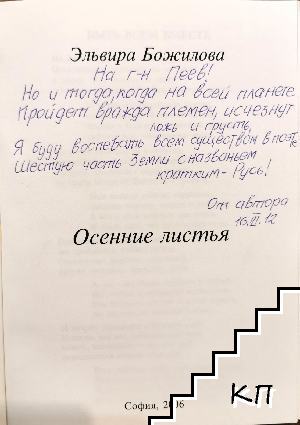 Эльвира Божилова
На г-н Пеев!
Но и тогда, когда на всей планете
Пройдет вражда племен, исчезнут
ложь и грусть,
Я буду воспевать всем существом в поэте
Шестую часть Земли с названьем
кратким - Русь!
От автора
16.VI.12
Осенние листья
София, 2006
КП